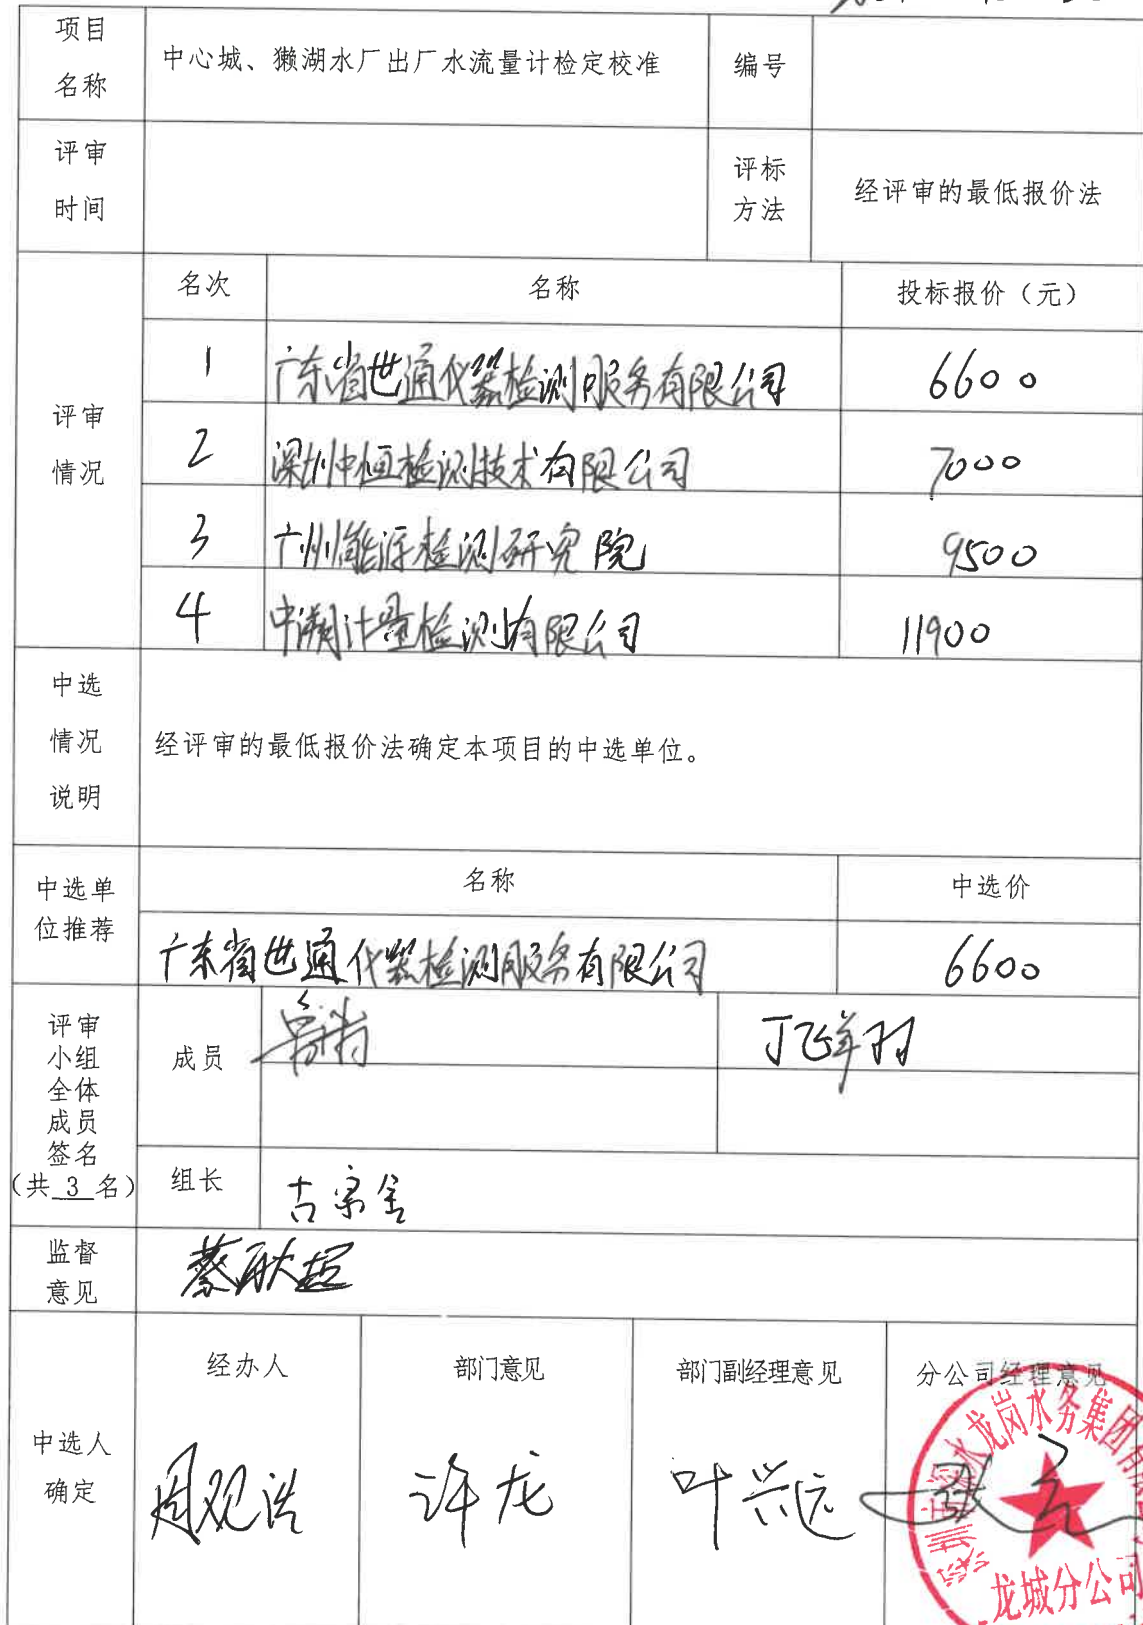 项目
名称
中心城、獭湖水厂出厂水流量计检定校准
编号
评审
时间
评标
方法
经评审的最低报价法
评审
情况
名次 名称 投标报价（元）
1 广东省世通仪器检测服务有限公司 6600
2 深圳中恒检测技术有限公司 7000
3 广州能源检测研究院 9500
4 中溯计量检测有限公司 11900
中选
情况
说明
经评审的最低报价法确定本项目的中选单位。
中选单
位推荐
名称 中选价
广东省世通仪器检测服务有限公司 6600
评审
小组
全体
成员
签名
（共 3 名）
成员
丁飞羊羽
组长
监督
意见
蔡耿超
中选人
确定
经办人 部门意见 部门副经理意见 分公司经理意见
周观浩 许龙 叶兴远
深圳市深水龙岗水务集团有限
龙城分公司